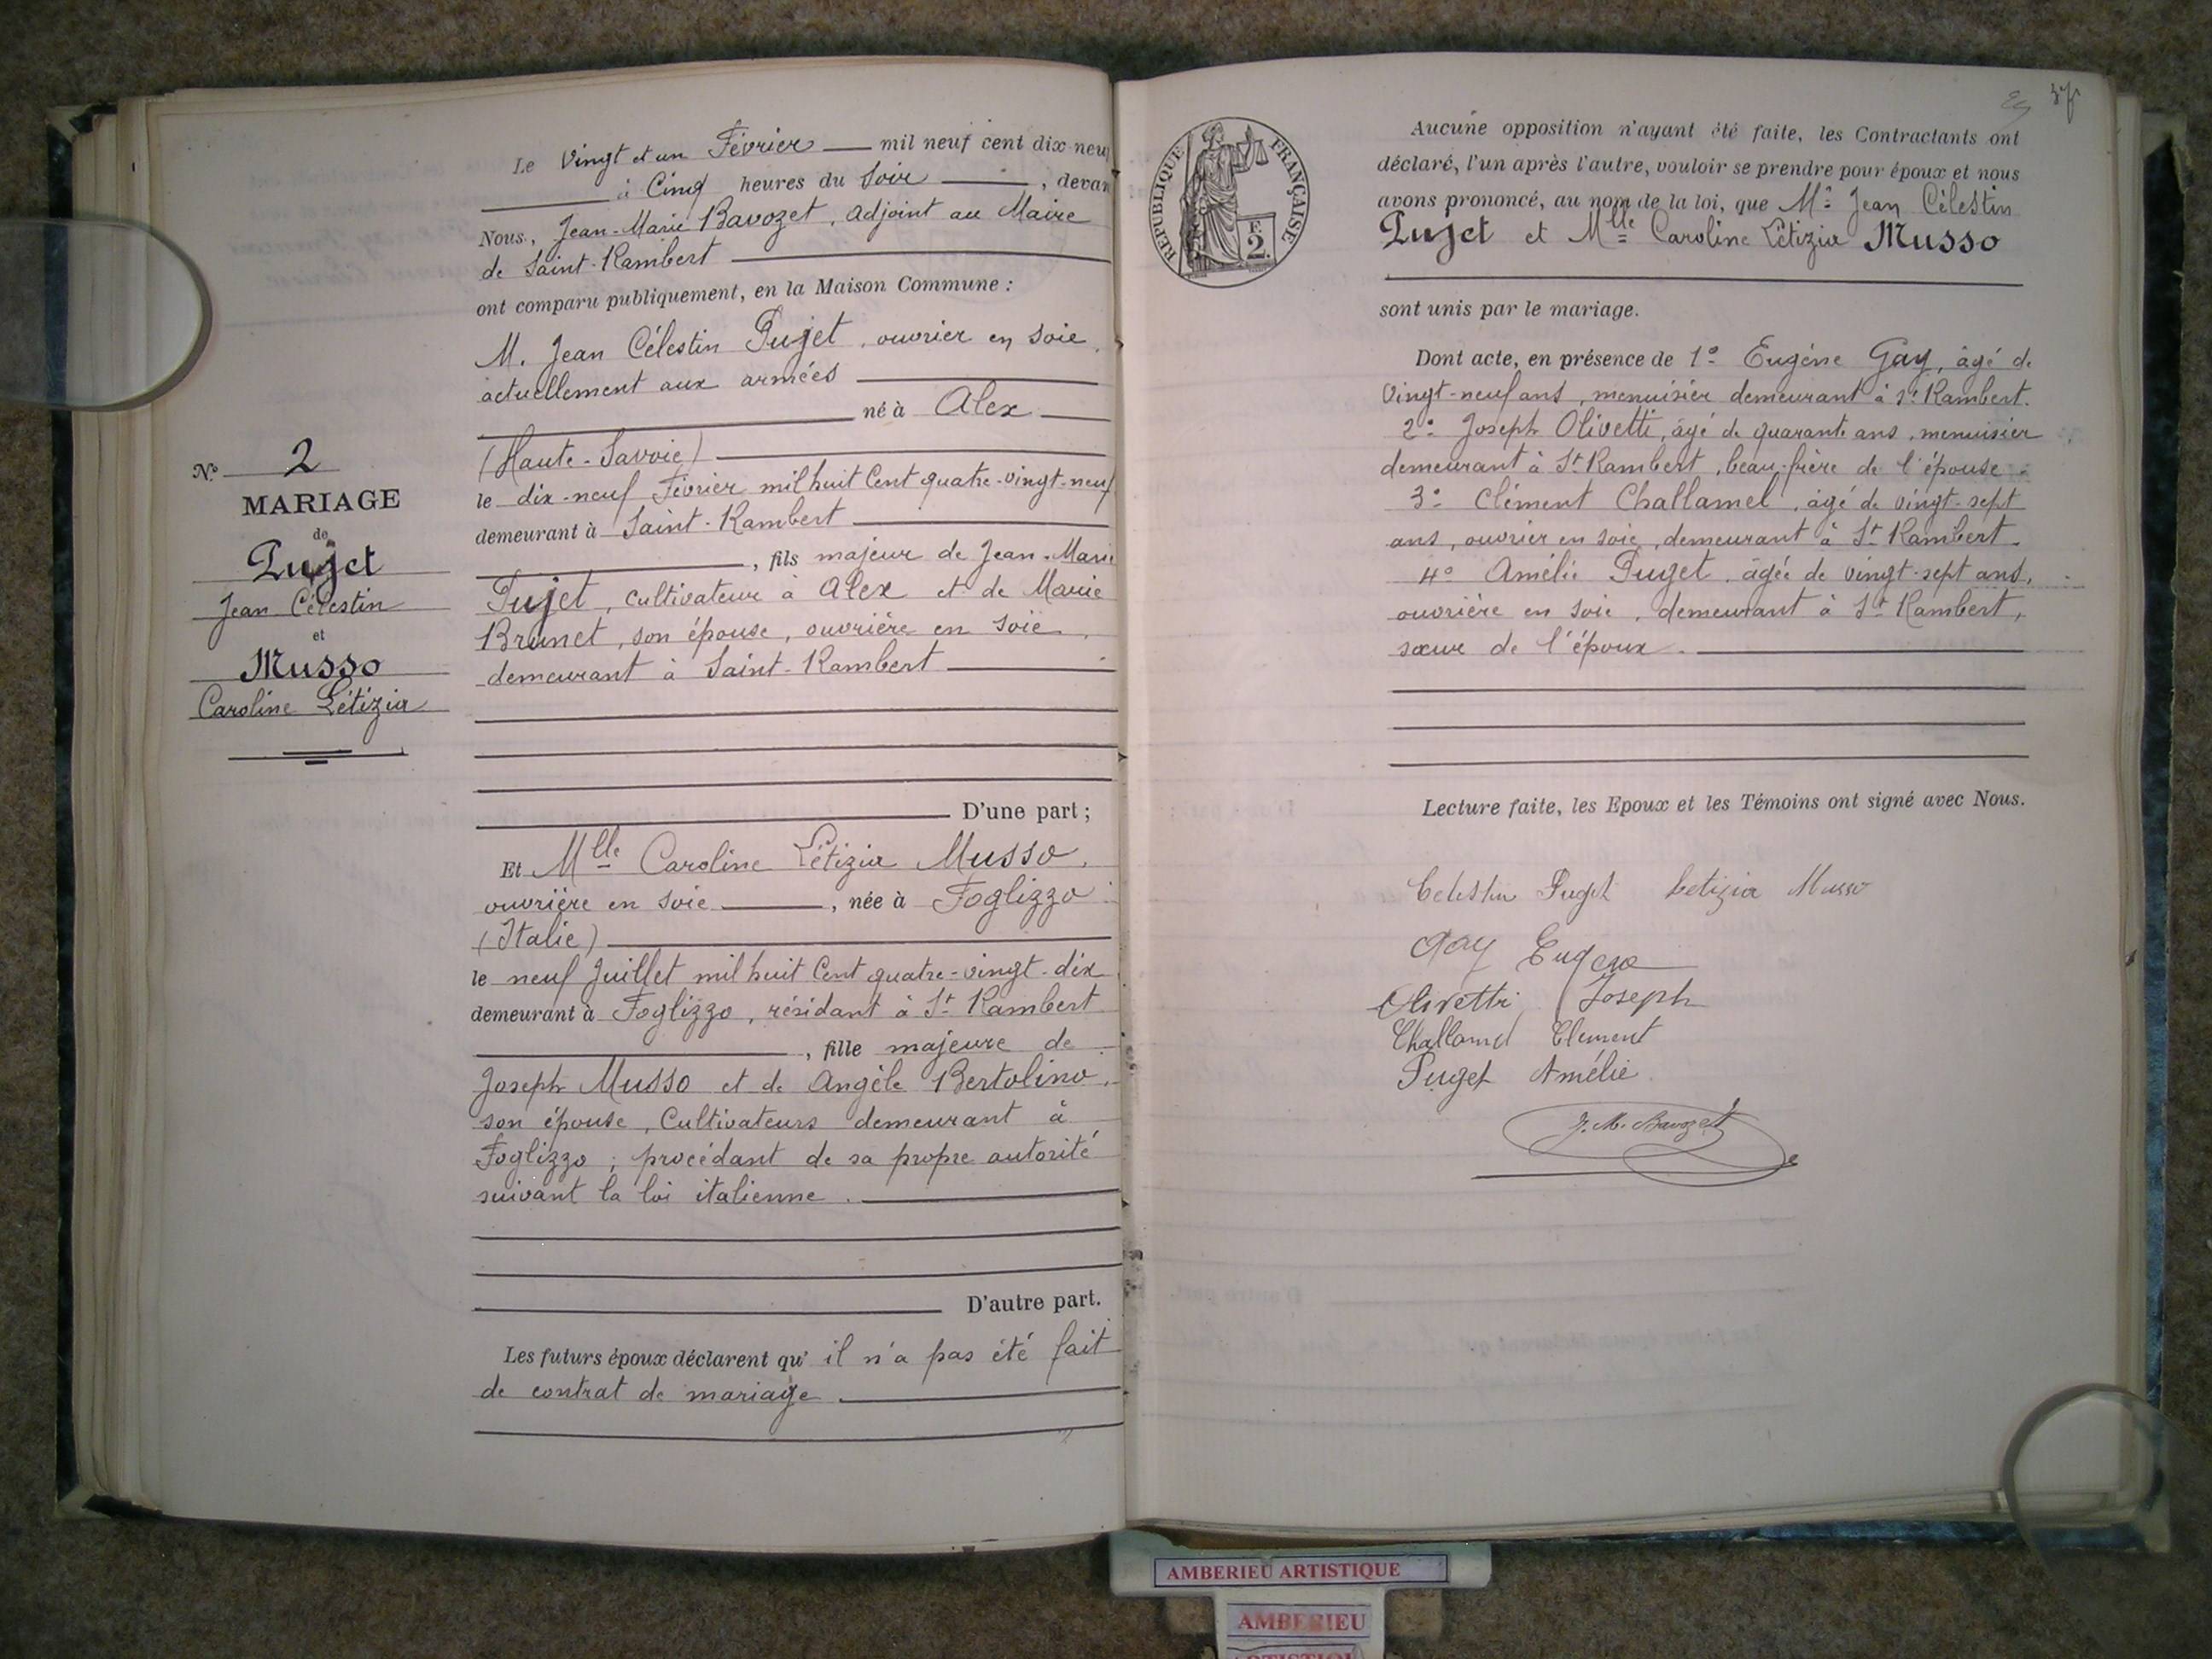 Le Vingt et un Février mil neuf cent dix neuf
à Cinq heures du soir , devan
Nous, Jean-Marie Bavozet, adjoint au Maire
de Saint-Rambert
ont comparu publiquement, en la Maison Commune :
M. Jean Célestin Pujet, ouvrier en soie,
actuellement aux armées
né à Alex
(Haute-Savoie)
le dix-neuf Février mil huit Cent quatre-vingt-neuf
demeurant à Saint-Rambert
, fils majeur de Jean-Marie
Pujet, cultivateur à Alex et de Marie
Brunet, son épouse, ouvrière en soie,
demeurant à Saint-Rambert
N° 2
MARIAGE
de
Pujet
Jean Célestin
et
Musso
Caroline Létizia
D'une part ;
Et Mlle Caroline Létizia Musso,
ouvrière en soie , née à Foglizzo
(Italie)
le neuf Juillet mil huit Cent quatre-vingt-dix
demeurant à Foglizzo, résidant à St Rambert
, fille majeure de
Joseph Musso et de Angèle Bertolino,
son épouse, Cultivateurs demeurant à
Foglizzo ; procédant de sa propre autorité
suivant la loi italienne.
D'autre part.
Les futurs époux déclarent qu' il n'a pas été fait
de contrat de mariage.
REPUBLIQUE FRANÇAISE
F.
2.
Aucune opposition n'ayant été faite, les Contractants ont
déclaré, l'un après l'autre, vouloir se prendre pour époux et nous
avons prononcé, au nom de la loi, que Mr Jean Célestin
Pujet et Mlle Caroline Létizia Musso
sont unis par le mariage.
Dont acte, en présence de 1° Eugène Gay, âgé de
Vingt-neuf ans, menuisier demeurant à St Rambert.
2° Joseph Olivetti, âgé de quarante ans, menuisier
demeurant à St Rambert, beau-frère de l'épouse
3° Clément Challamel, âgé de vingt-sept
ans, ouvrier en soie, demeurant à St Rambert.
4° Amélie Puget, âgée de vingt-sept ans,
ouvrière en soie, demeurant à St Rambert,
sœur de l'époux.
Lecture faite, les Epoux et les Témoins ont signé avec Nous.
Celestin Puget Letizia Musso
Gay Eugene
Olivetti Joseph
Challamel Clement
Puget Amélie
J. M. Bavozet
AMBERIEU ARTISTIQUE
AMBERIEU
ARTISTIQUE